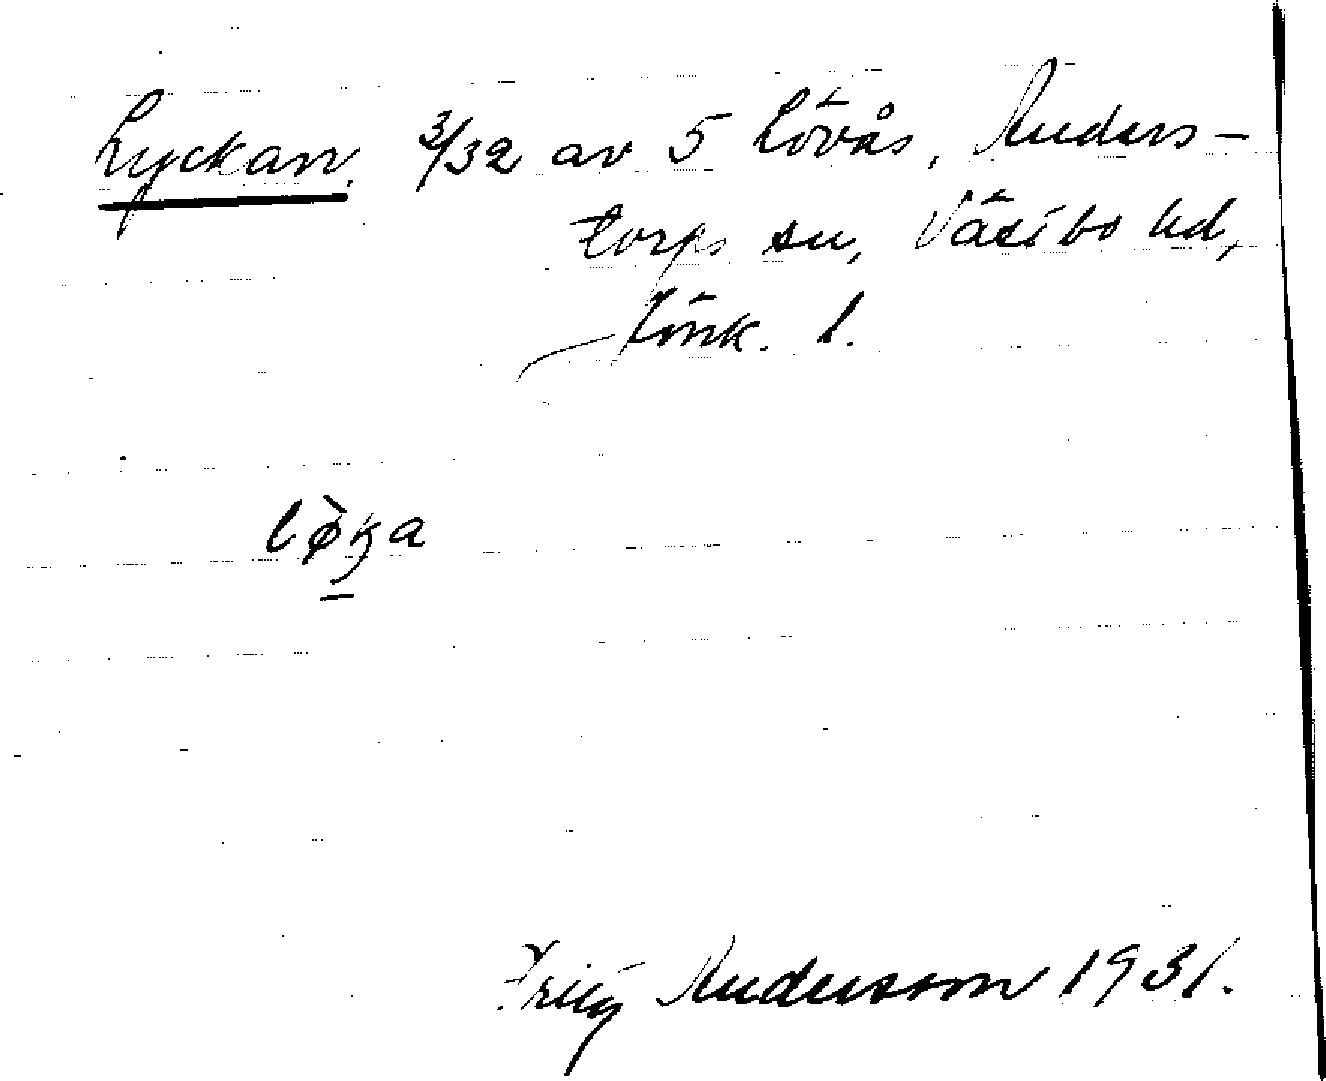 Lyckan. 3/32 av 5 Lövås, Anders-
torps sn, Västbo hd,
Jönk. l.
lø̀ka
Fritz Andersson 1931.